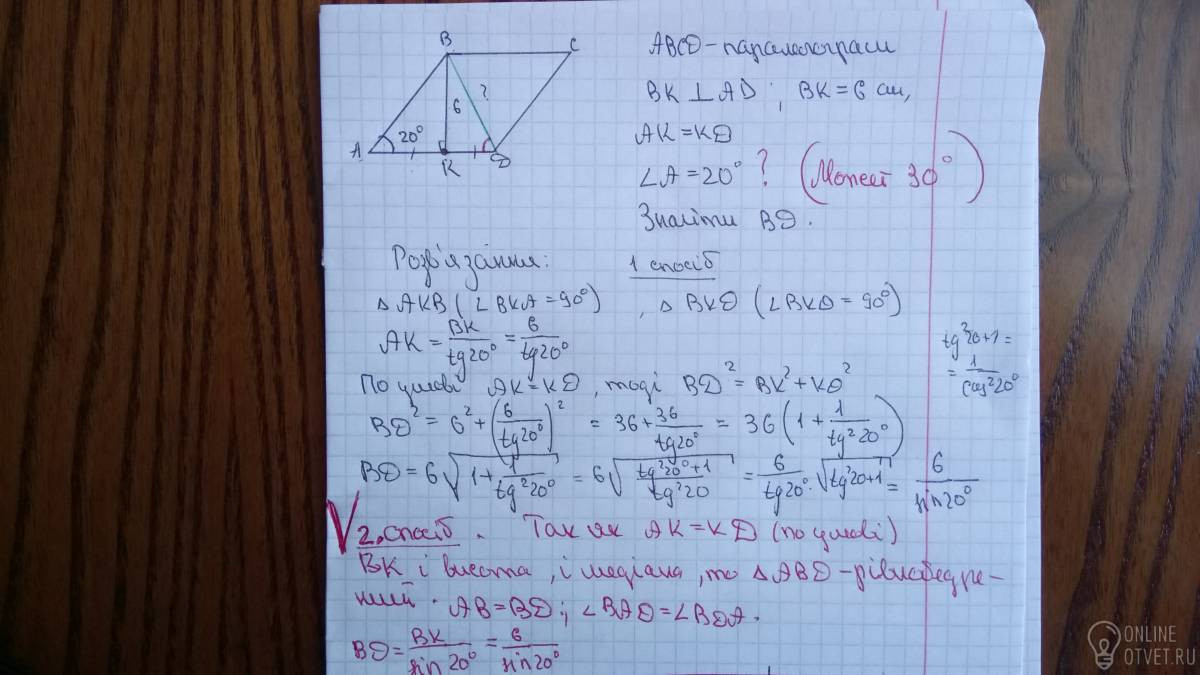 B
C
ABCD - паралелограм
BK ⊥ AD ; BK = 6 см,
6
?
20°
A
K
D
AK = KD
∠A = 20° ? (Может 30°)
Знайти BD.
Розв'язання: 1 спосіб
△AKB (∠BKA = 90°), △BKD (∠BKD = 90°)
AK = BK/tg20° = 6/tg20°
tg²20+1 =
= 1/cos²20°
По умові AK = KD, тоді BD² = BK² + KD²
BD² = 6² + (6/tg20°)² = 36 + 36/tg20° = 36(1 + 1/tg²20°)
BD = 6√(1 + 1/tg²20°) = 6√((tg²20°+1)/tg²20) = 6/tg20° · √(tg²20+1) = 6/sin20°
V 2. спосіб. Так як AK = KD (по умові)
BK і висота, і медіана, то △ABD - рівнобедре-
ний. AB = BD; ∠BAD = ∠BDA.
BD = BK/sin20° = 6/sin20°
ONLINE
OTVET.RU